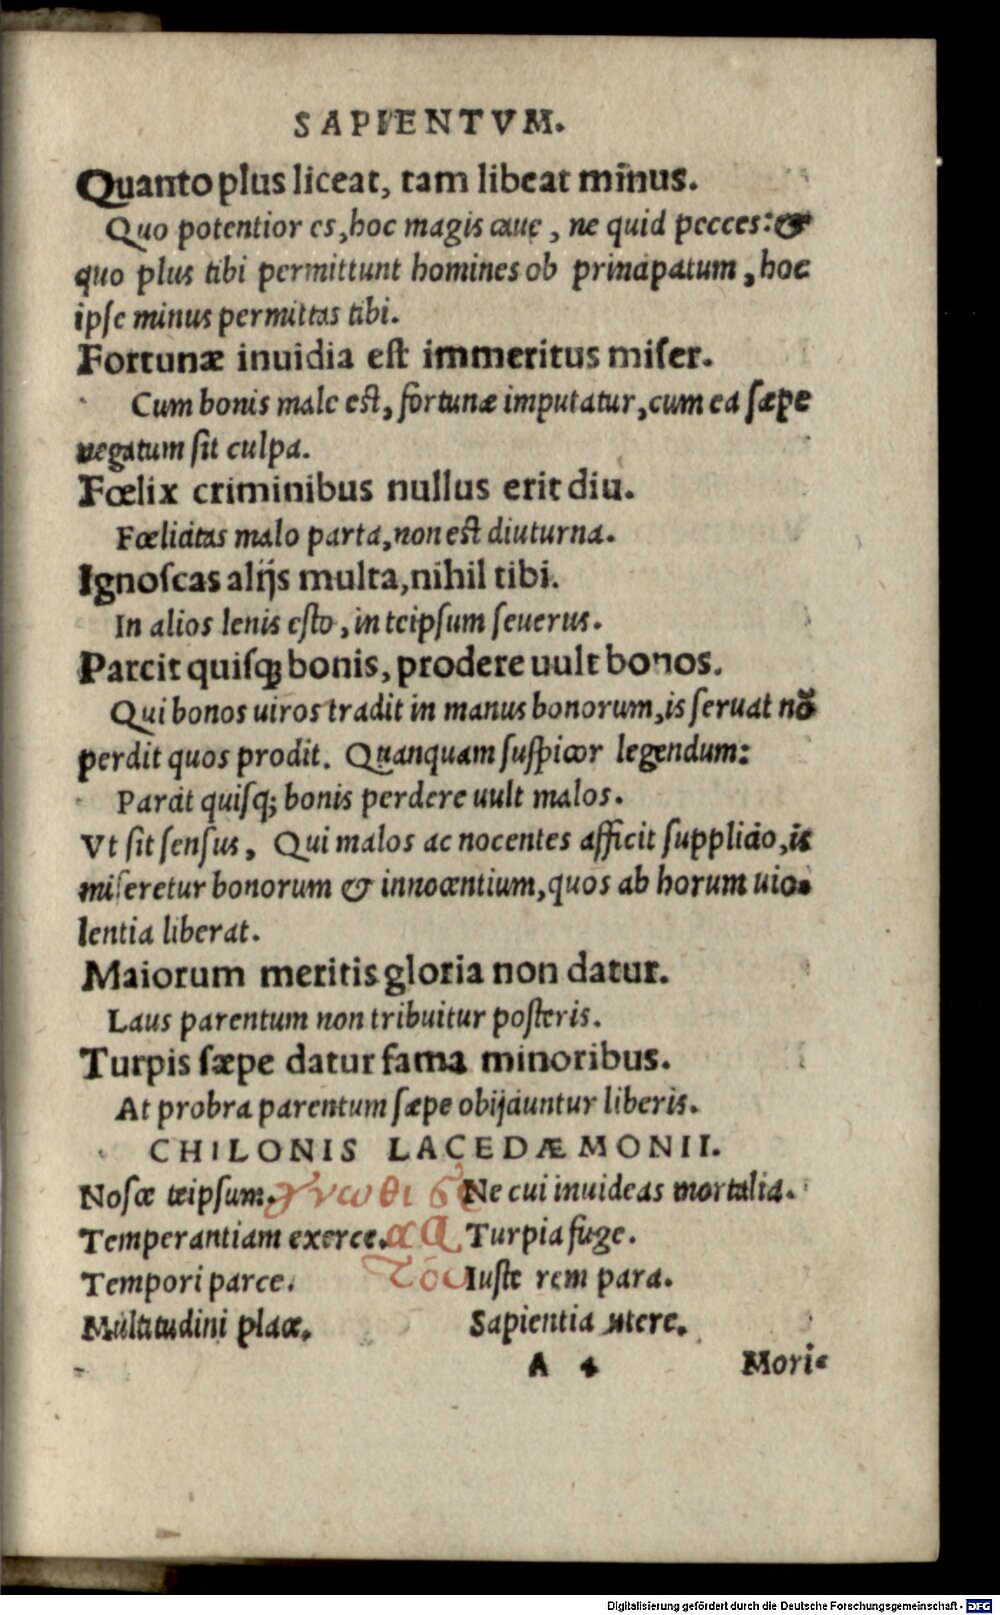 SAPIENTVM.
Quanto plus liceat, tam libeat minus.
Quo potentior es, hoc magis caue, ne quid pecces: &
quo plus tibi permittunt homines ob principatum, hoc
ipse minus permittas tibi.
Fortunæ inuidia est immeritus miser.
Cum bonis male est, fortunæ imputatur, cum ea sæpe
uegatum sit culpa.
Fœlix criminibus nullus erit diu.
Fœlicitas malo parta, non est diuturna.
Ignoscas alijs multa, nihil tibi.
In alios lenis esto, in teipsum seuerus.
Parcit quisq; bonis, prodere uult bonos.
Qui bonos uiros tradit in manus bonorum, is seruat nõ
perdit quos prodit. Quanquam suspicor legendum:
Parcit quisq; bonis perdere uult malos.
Vt sit sensus, Qui malos ac nocentes afficit supplicio, is
miseretur bonorum & innocentium, quos ab horum uio-
lentia liberat.
Maiorum meritis gloria non datur.
Laus parentum non tribuitur posteris.
Turpis sæpe datur fama minoribus.
At probra parentum sæpe obijciuntur liberis.
CHILONIS LACEDÆMONII.
Nosce teipsum. γνωθι σε Ne cui inuideas mortalia.
Temperantiam exerce. αυ Turpia fuge.
Tempori parce. τόν Iuste rem para.
Multitudini place. Sapientia utere.
A 4 Mori-
Digitalisierung gefördert durch die Deutsche Forschungsgemeinschaft - DFG